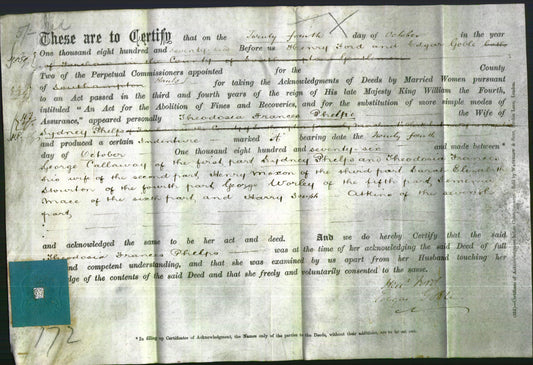 These are to Certify that on the Twenty fourth day of October in the year
One thousand eight hundred and seventy six Before us Henry Ford and Edgar Goble both
of in the County of
Two of the Perpetual Commissioners appointed for the County
of Southampton for taking the Acknowledgments of Deeds by Married Women pursuant
to an Act passed in the third and fourth years of the reign of His late Majesty King William the Fourth,
intituled "An Act for the Abolition of Fines and Recoveries, and for the substitution of more simple modes of
Assurance," appeared personally Theodosia Frances Phelps the Wife of
Sydney Phelps
and produced a certain Indenture marked A bearing date the Twenty fourth
day of October One thousand eight hundred and seventy-six and made between*
George Callaway of the first part Sydney Phelps and Theodosia Frances
his wife of the second part, Henry Moxon of the third part Sarah Elizabeth
Stourton of the fourth part George Worley of the fifth part
Mace of the sixth part and Harry Joseph Atkins of the seventh
part,
and acknowledged the same to be her act and deed. And we do hereby Certify that the said
Theodosia Frances Phelps was at the time of her acknowledging the said Deed of full
and competent understanding, and that she was examined by us apart from her Husband touching her
knowledge of the contents of the said Deed and that she freely and voluntarily consented to the same.
Hen. Ford
Edgar Goble
772
*In filling up Certificates of Acknowledgment, the Names only of the parties to the Deeds, without their additions, are to be set out.